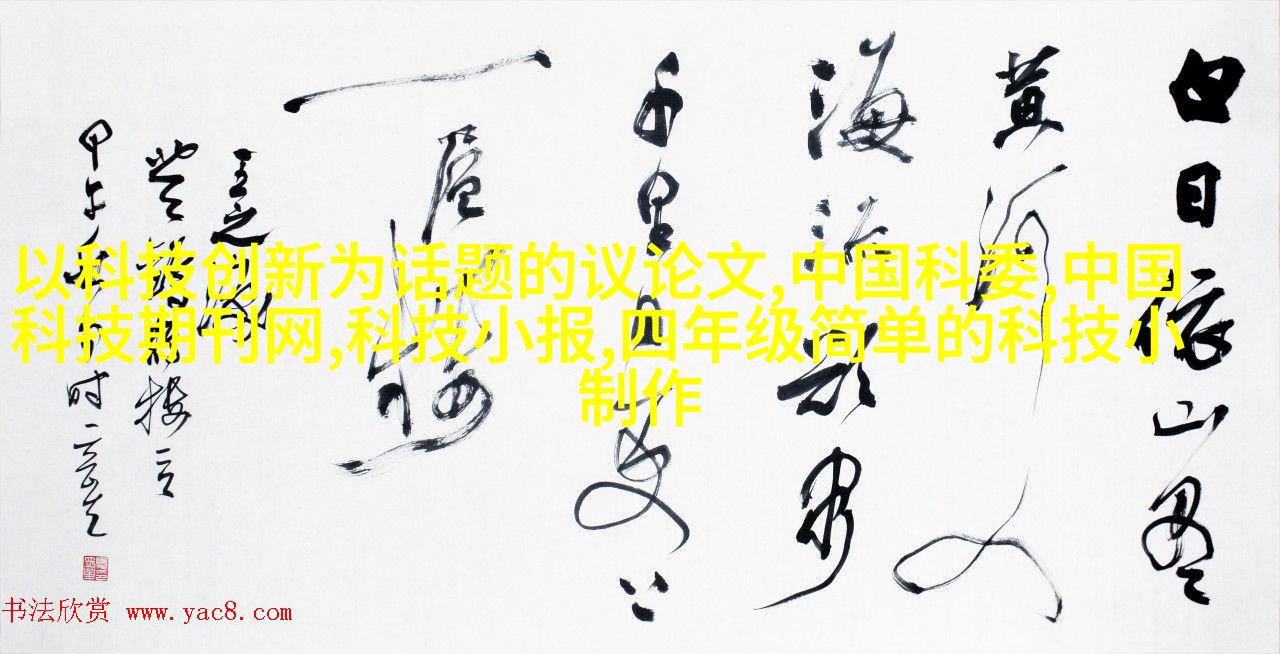 白日依山盡
黄河入
海流欲穷
千里目更上
一層樓
王之涣
甲午
以科技创新为话题的议论文,中国科委,中国
科技期刊网,科技小报,四年级简单的科技小
制作
书法欣赏 www.yac8.com